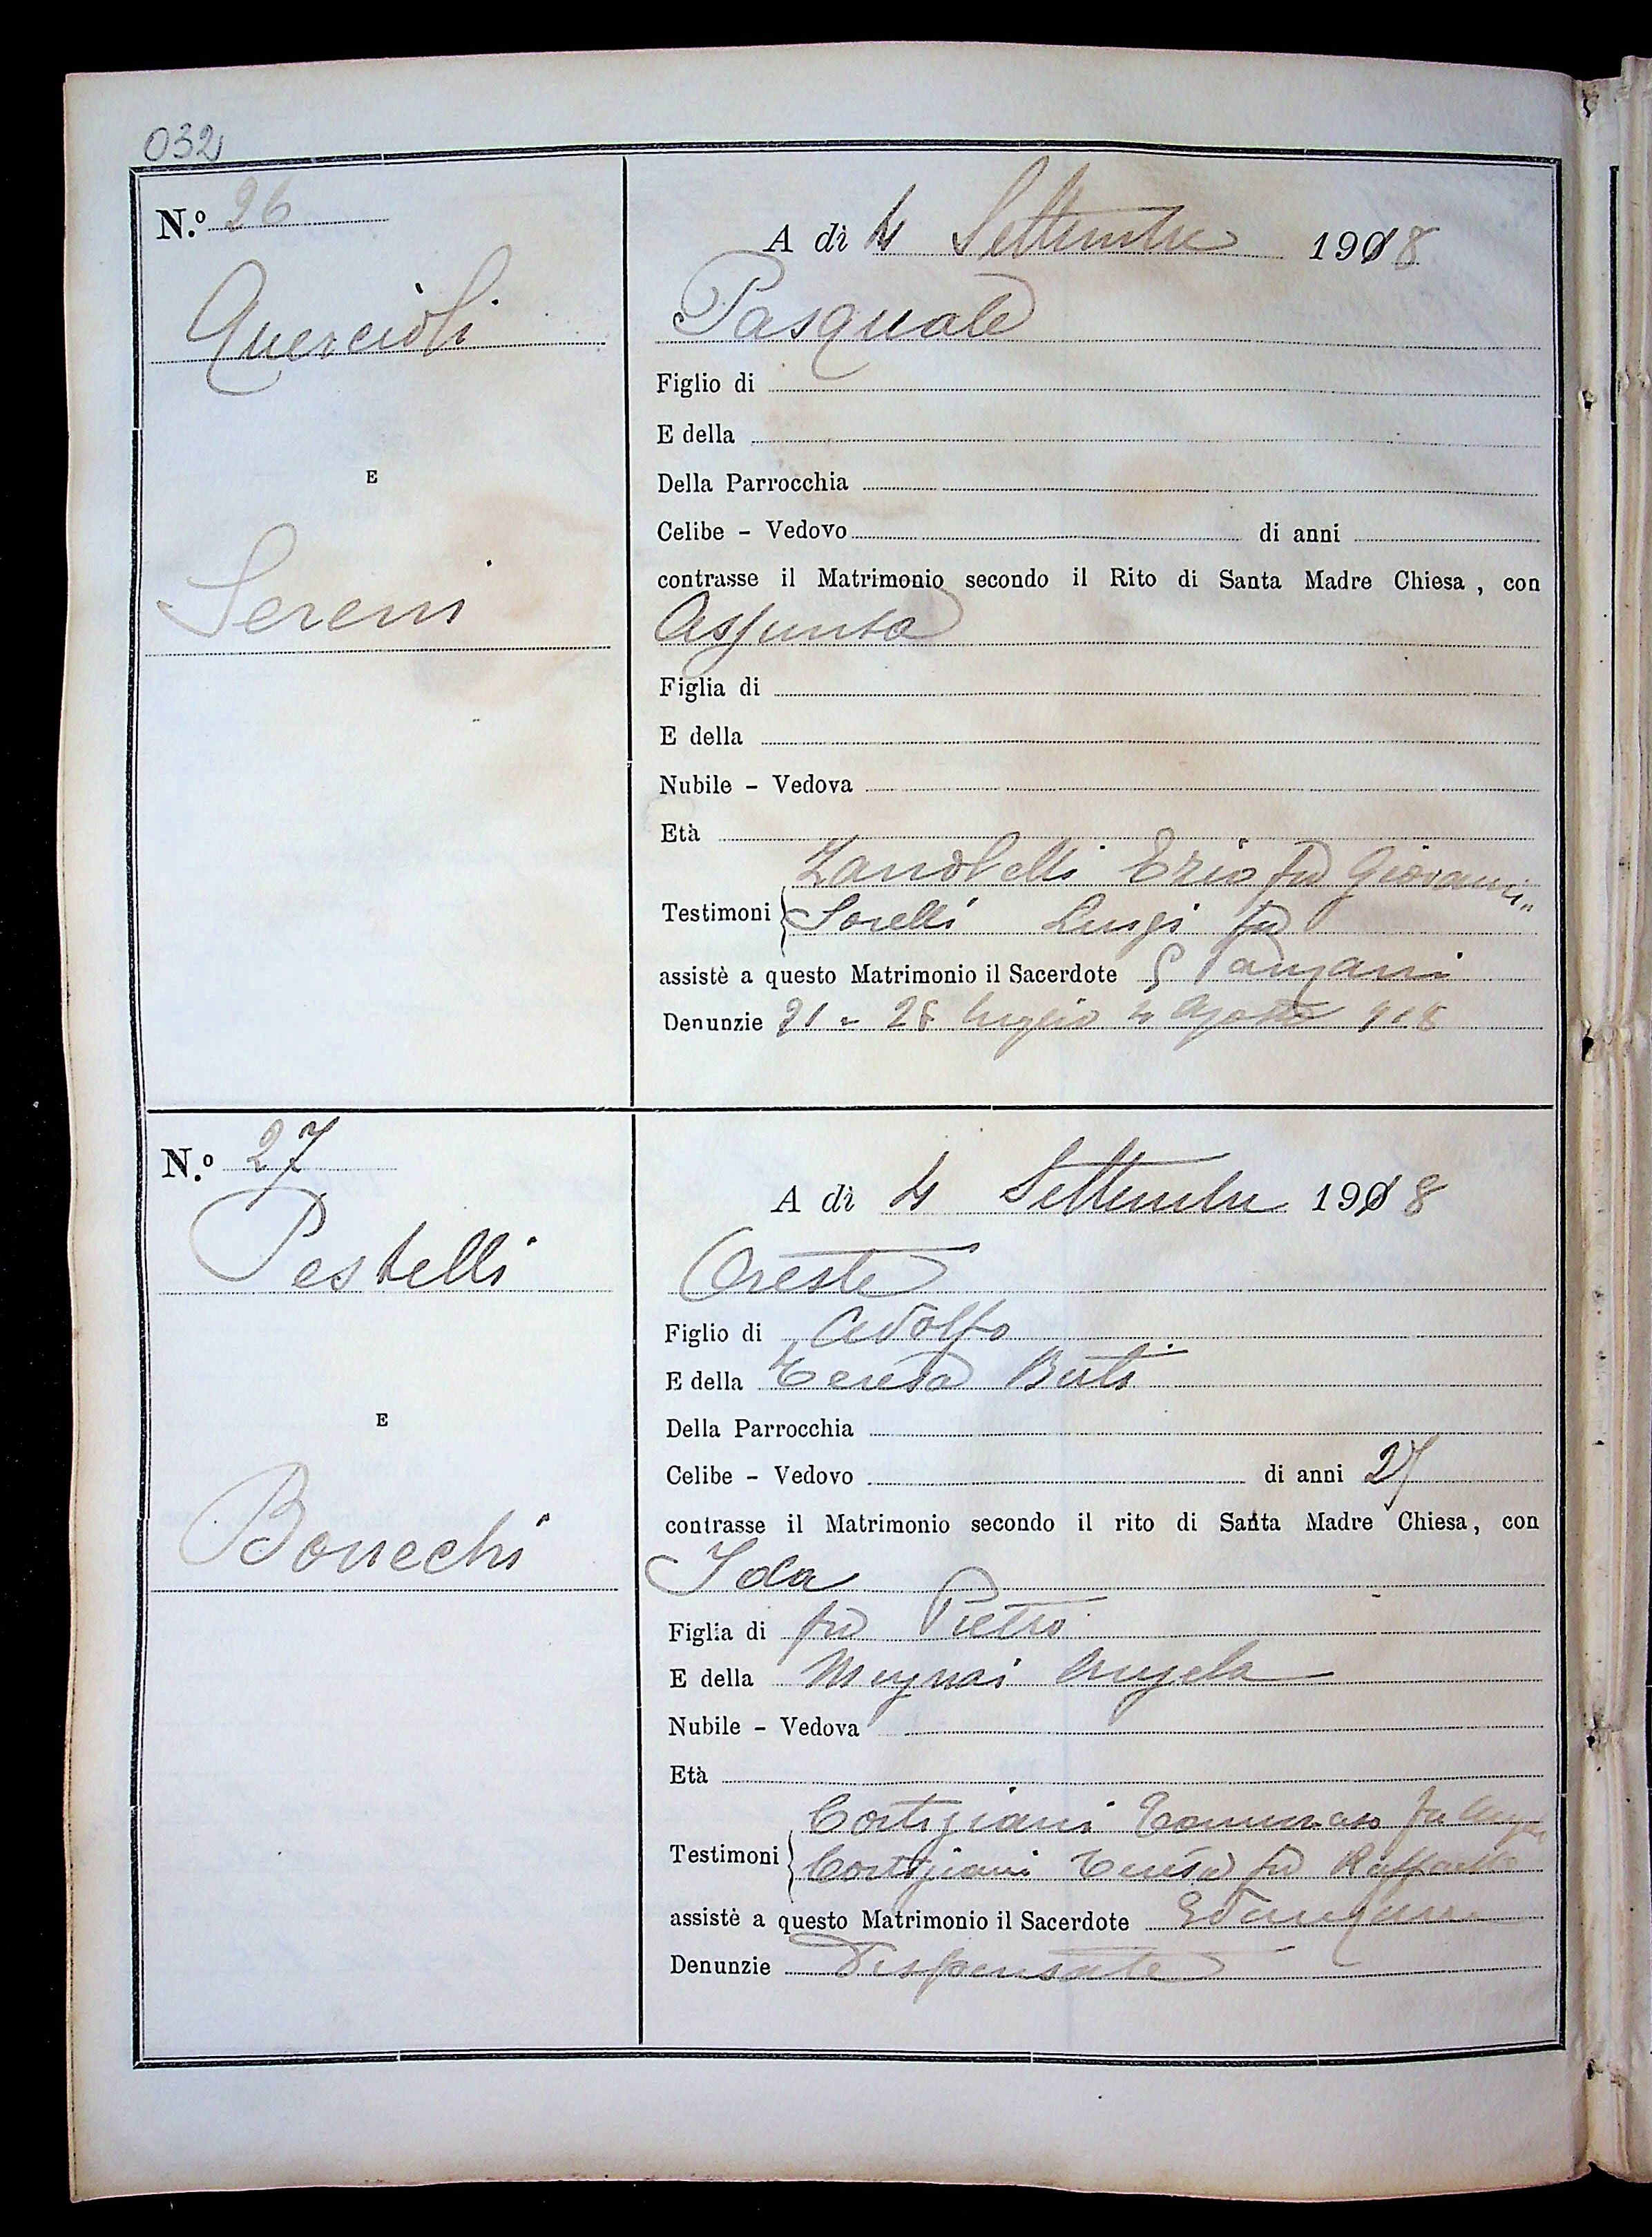 032
N.º 26
A dì 4 Settembre 1918
Quercioli
Pasquale
Figlio di
E della
Della Parrocchia
E
Celibe - Vedovo di anni
contrasse il Matrimonio secondo il Rito di Santa Madre Chiesa, con
Sereni
Assunta
Figlia di
E della
Nubile - Vedova
Età
Zanobetti Ezio fu Giovanni
Testimoni
Sorelli Luigi fu
assistè a questo Matrimonio il Sacerdote
Denunzie 21 - 28 luglio 4 Agosto 918
N.º 27
A dì 4 Settembre 1918
Pestelli
Oreste
Figlio di Adolfo
E della Teresa Buti
Della Parrocchia
E
Celibe - Vedovo di anni 27
contrasse il Matrimonio secondo il rito di Santa Madre Chiesa, con
Bonechi
Ida
Figlia di fu Pietro
E della Mugnai Angela
Nubile - Vedova
Età
Cortigiani Tommaso fu
Testimoni
Cortigiani Teresa fu Raffaello
assistè a questo Matrimonio il Sacerdote
Denunzie Dispensate